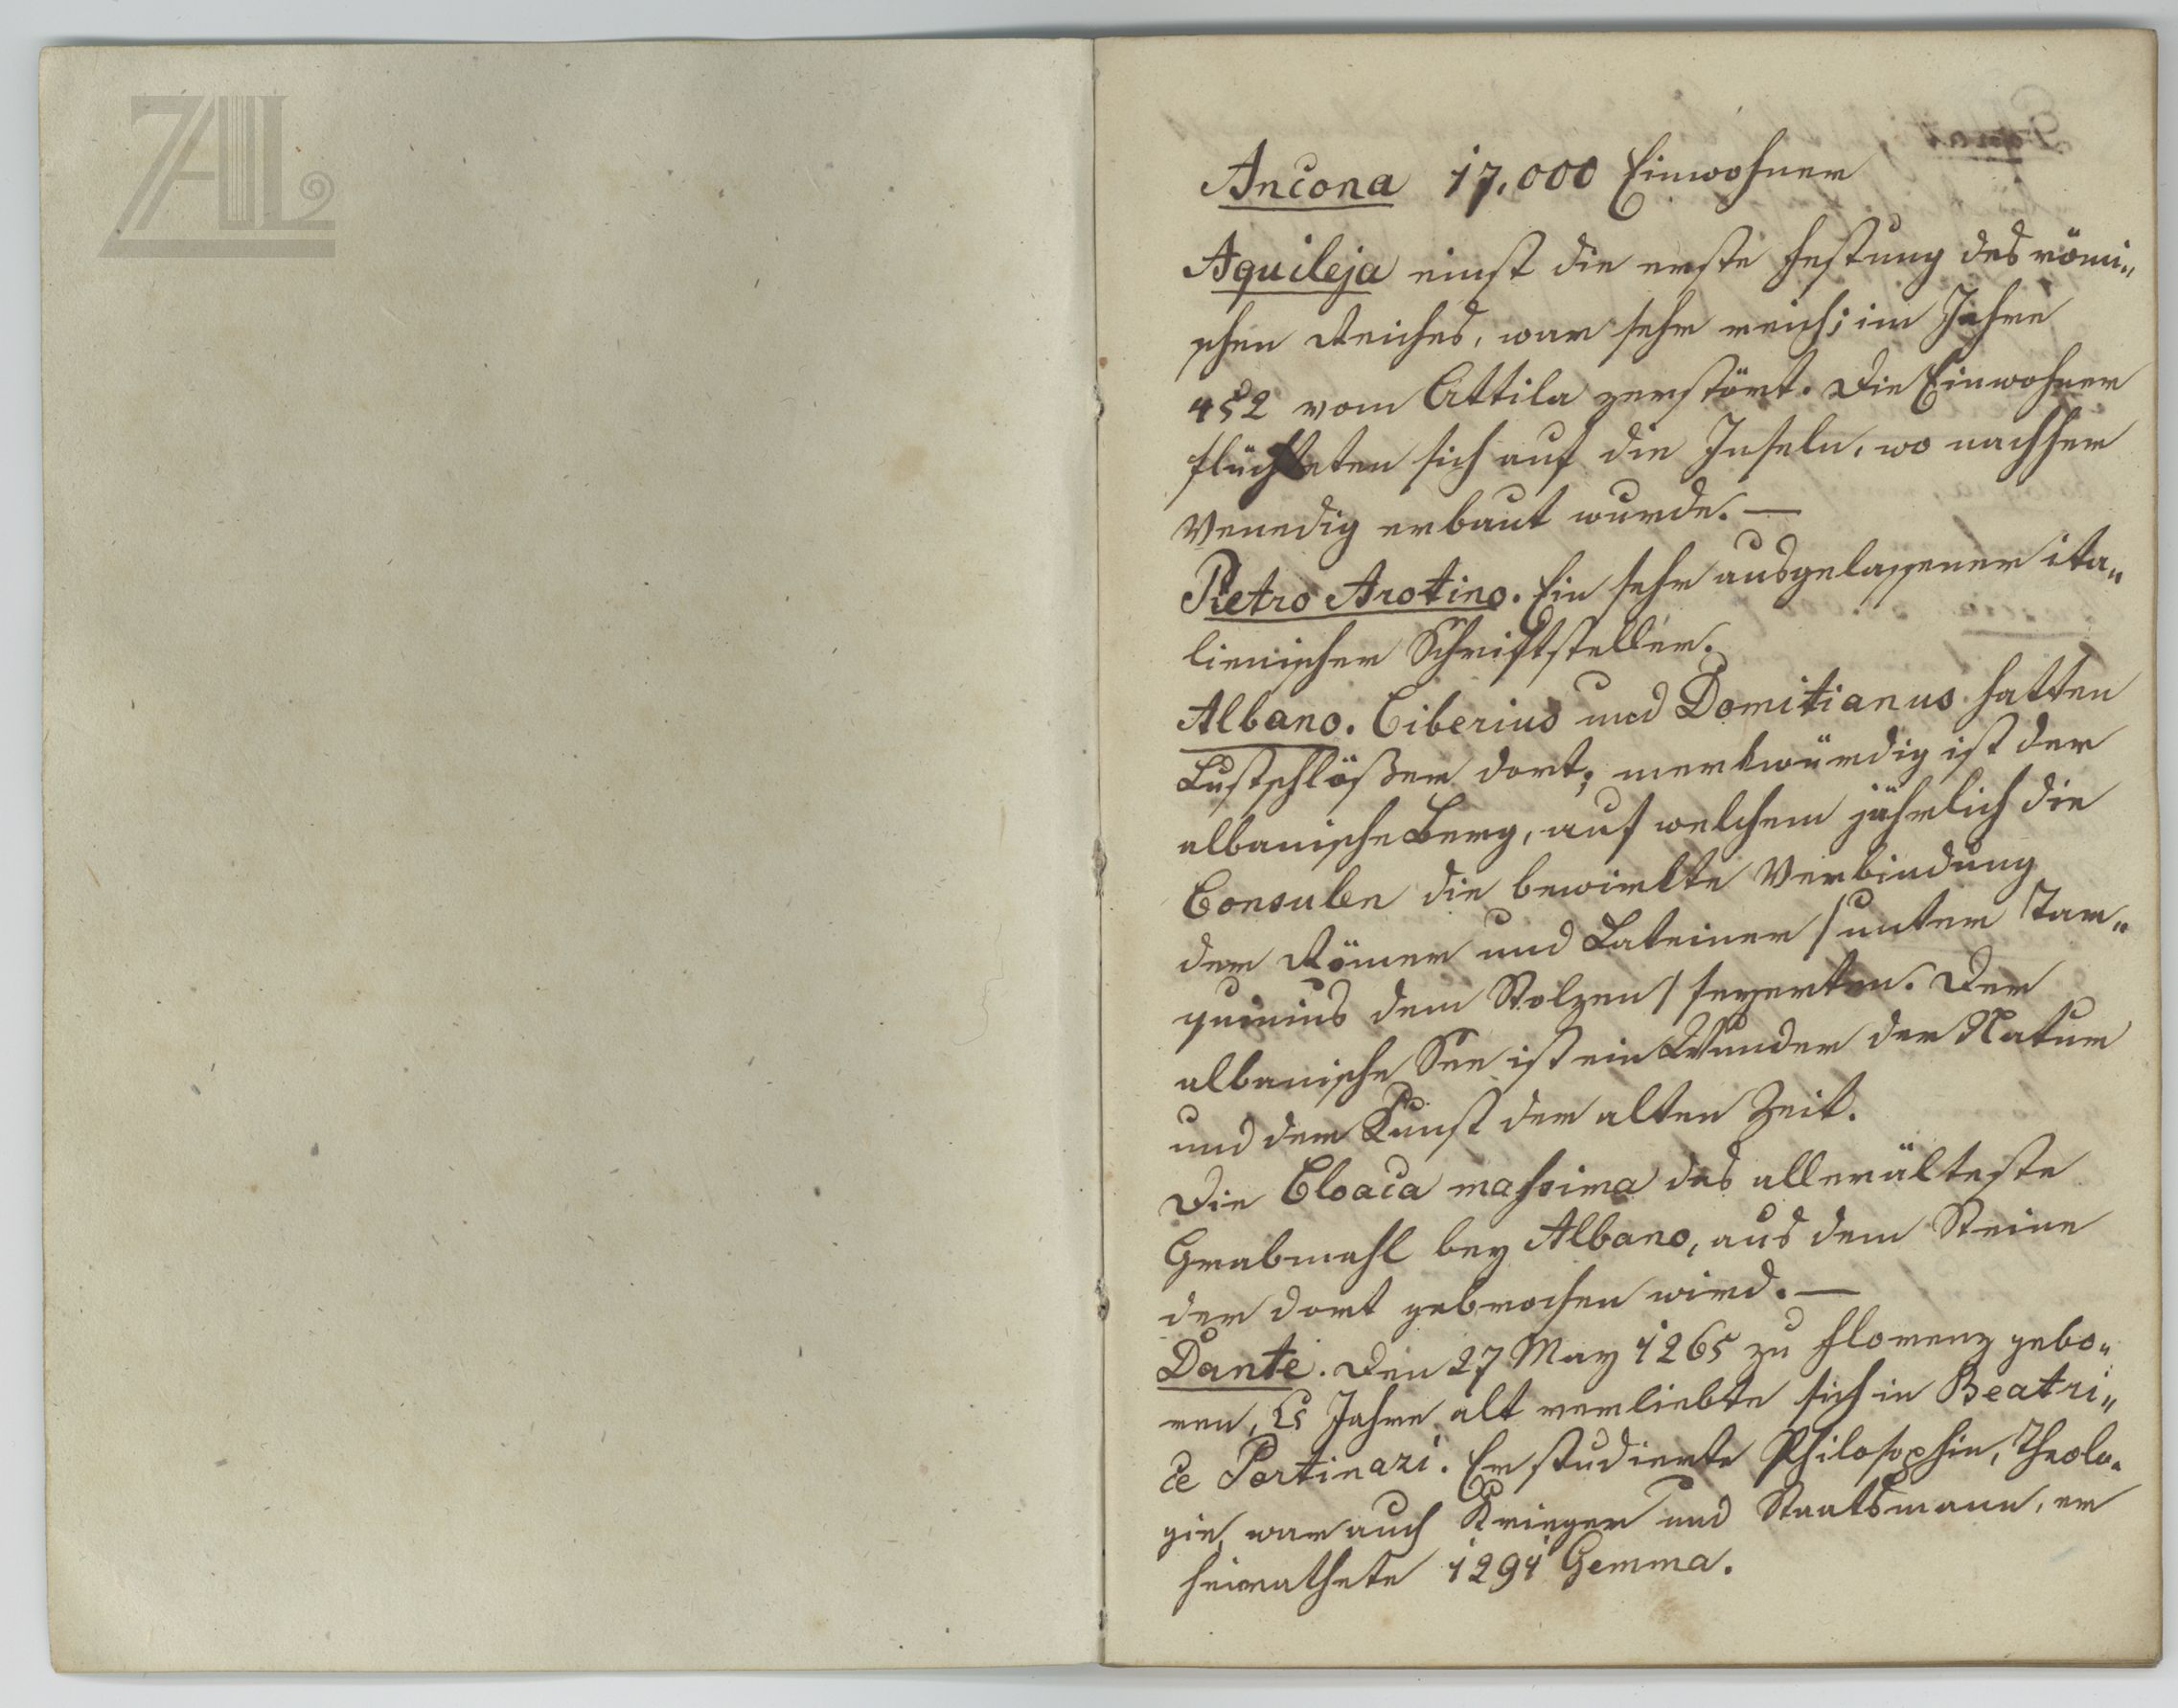 ZAL
Ancona 17.000 Einwohner
Aquileja einst die erste Festung des römi„
schen Reiches, war sehr reich; im Jahre
452 vom Attila zerstört. Die Einwohner
flüchteten sich auf die Inseln, wo nachher
Venedig erbaut wurde. —
Pietro Arotino. Ein sehr ausgelassener ita„
lienischer Schriftsteller.
Albano. Tiberius und Domitianus hatten
Lustschlößer dort; merkwürdig ist der
albanische Berg, auf welchem jährlich die
Consulen die bewirkte Verbindung
der Römer und Lateiner /unter Tar„
quinius dem Stolzen/ feyerten. Der
albanische See ist ein Wunder der Natur
und der Kunst der alten Zeit.
Die Cloaca massima das allerälteste
Grabmahl bey Albano, aus dem Steine
der dort gebrochen wird. —
Dante. Den 27 May 1265 zu Florenz gebo„
ren, Jahre alt verliebte sich in Beatri„
ce Portinari. Er studierte Philosophie, Theolo„
gie, war auch Krieger und Staatsmann, er
heirathete 1291 Gemma.